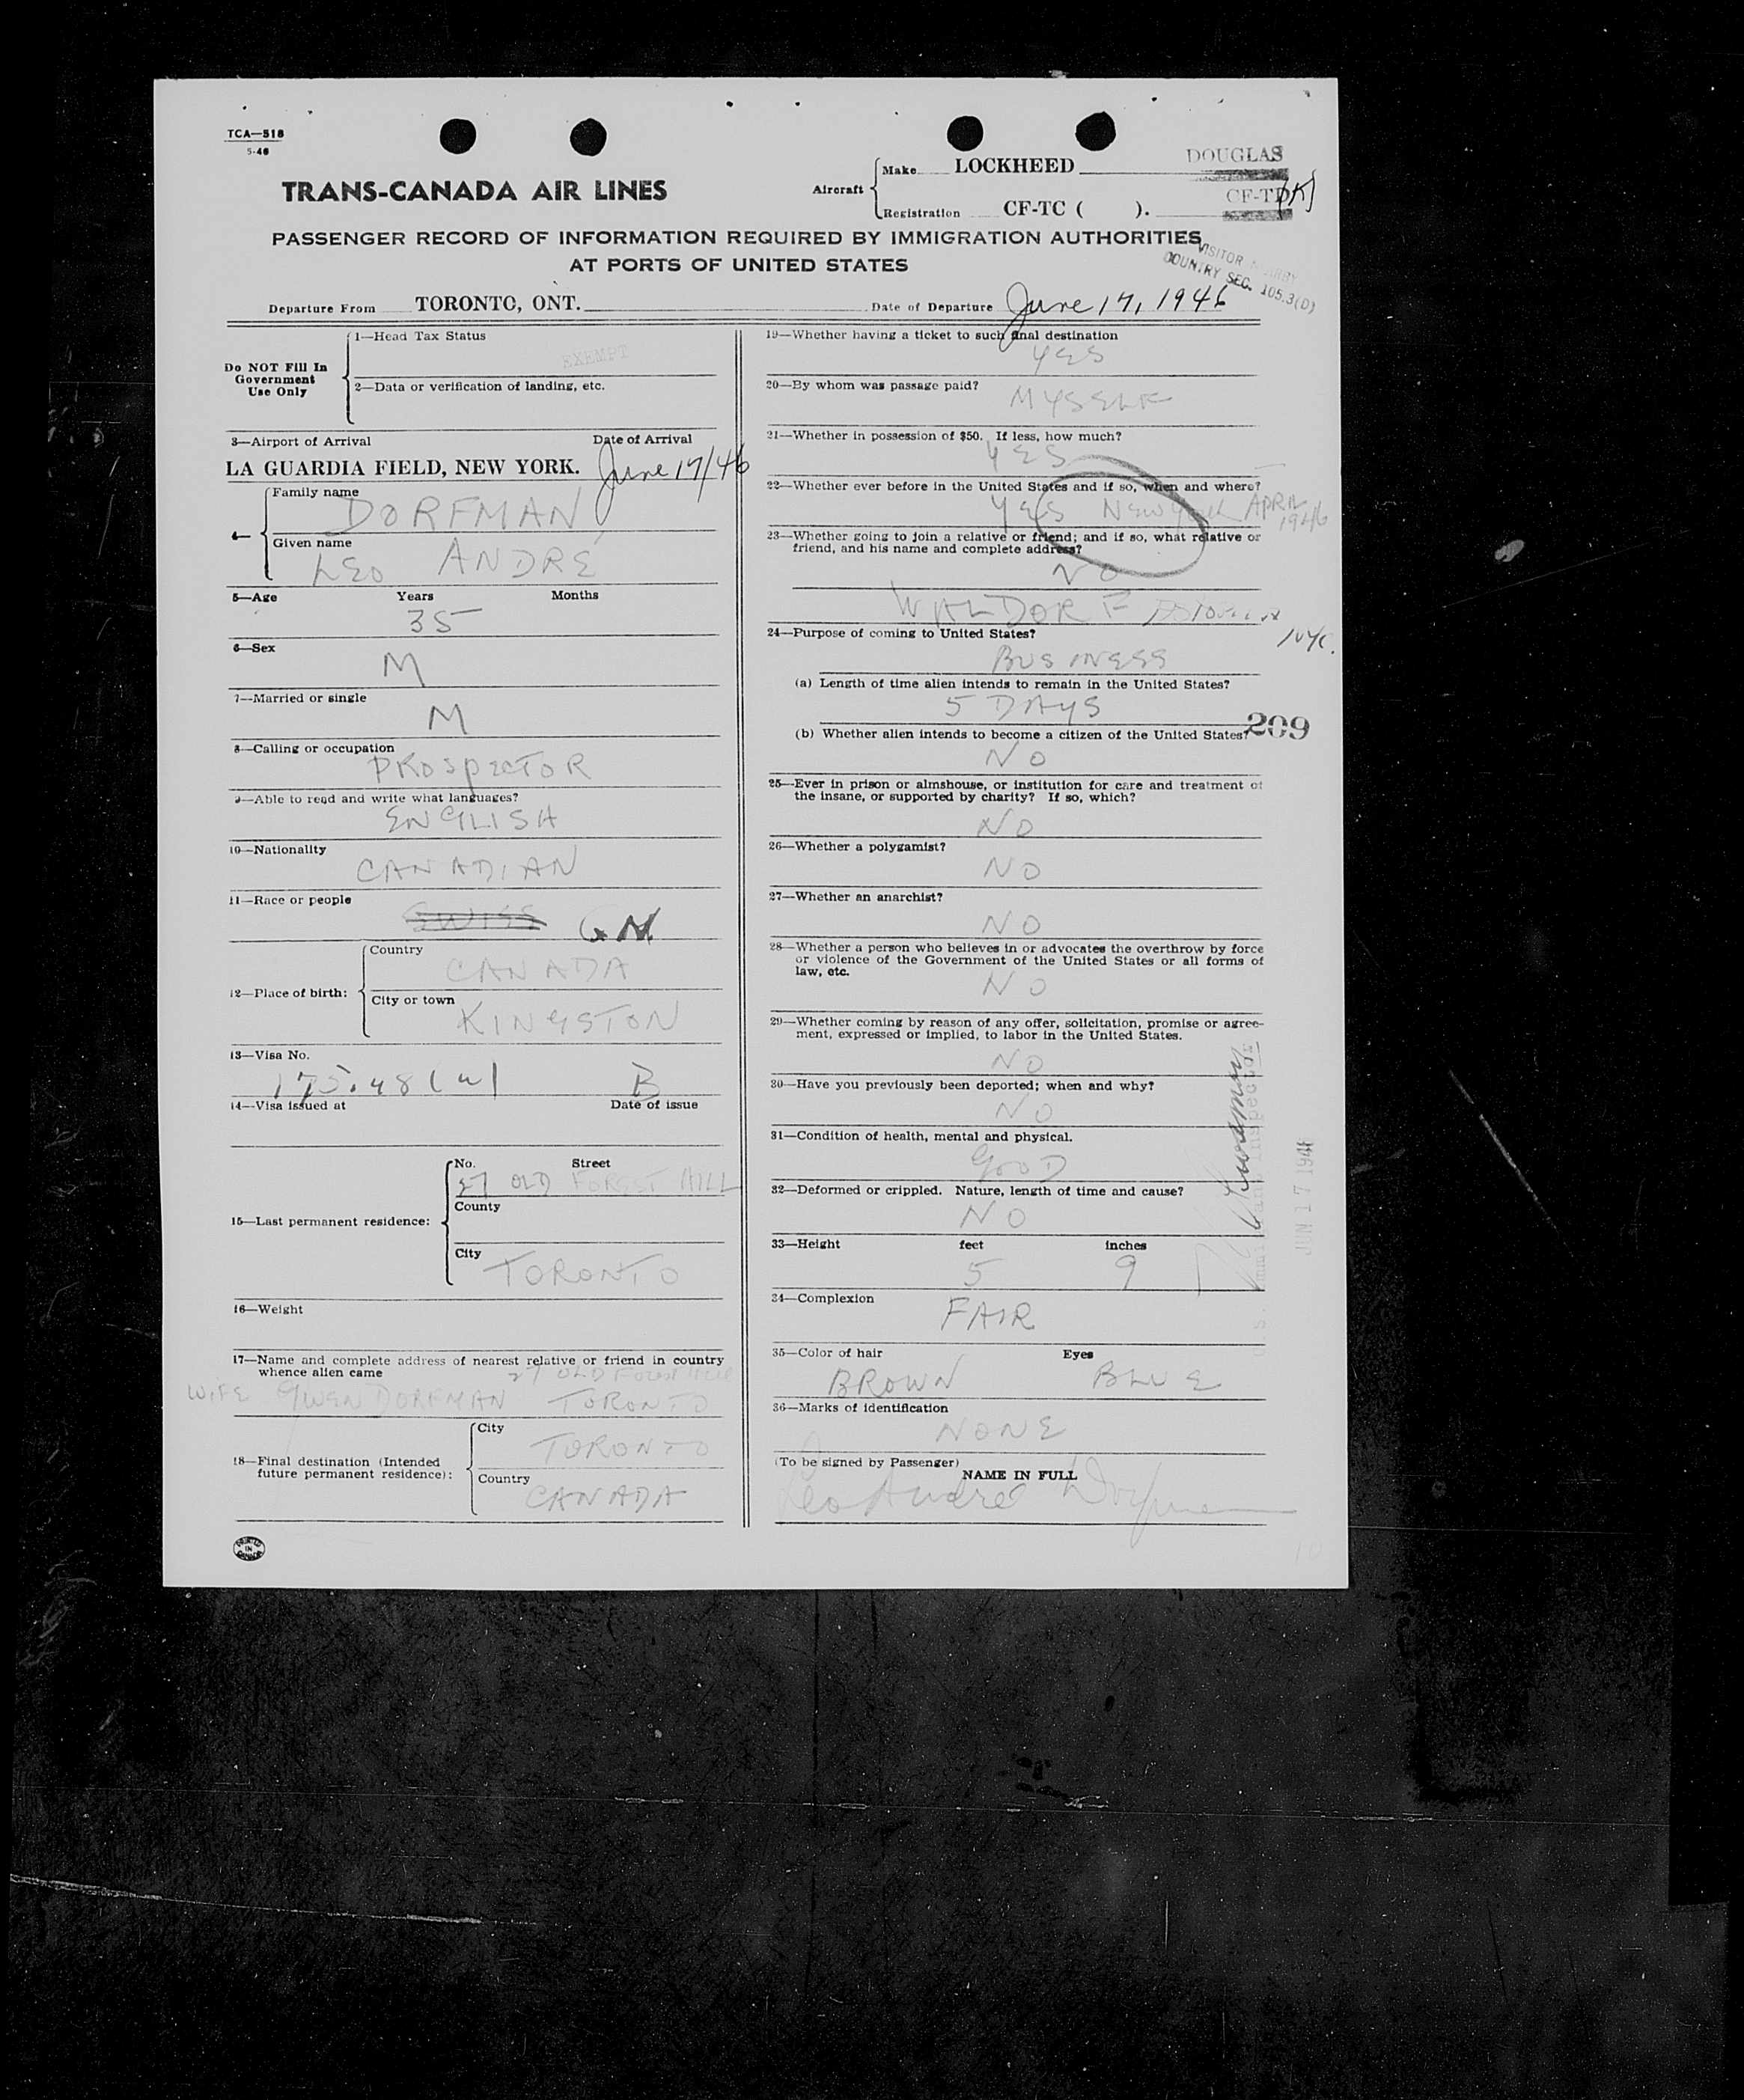 TCA—518
5-46
TRANS-CANADA AIR LINES
Aircraft
Make LOCKHEED
DOUGLAS
Registration CF-TC ( ).
CF-TD(K)
PASSENGER RECORD OF INFORMATION REQUIRED BY IMMIGRATION AUTHORITIES
AT PORTS OF UNITED STATES
VISITOR
COUNTRY SEC. 105.3(D)
Departure From TORONTO, ONT.
Date of Departure June 17, 1946
Do NOT Fill In
Government
Use Only
1—Head Tax Status
EXEMPT
2—Data or verification of landing, etc.
3—Airport of Arrival Date of Arrival
LA GUARDIA FIELD, NEW YORK. June 17/46
4—
Family name
DORFMAN
Given name
LEO ANDRÉ
5—Age Years Months
35
6—Sex
M
7—Married or single
M
8—Calling or occupation
PROSPECTOR
9—Able to read and write what languages?
ENGLISH
10—Nationality
CANADIAN
11—Race or people
SWISS
12—Place of birth:
Country
CANADA
City or town
KINGSTON
13—Visa No.
175.48 B
14—Visa issued at Date of issue
15—Last permanent residence:
No. Street
27 OLD FOREST HILL
County
City
TORONTO
16—Weight
17—Name and complete address of nearest relative or friend in country
whence alien came
27 OLD Forest Hill
WIFE GWEN DORFMAN TORONTO
18—Final destination (Intended
future permanent residence):
City
TORONTO
Country
CANADA
PRINTED
IN
CANADA
19—Whether having a ticket to such final destination
YES
20—By whom was passage paid?
MYSELF
21—Whether in possession of $50. If less, how much?
YES
22—Whether ever before in the United States and if so, when and where?
YES New York APRIL
1946
23—Whether going to join a relative or friend; and if so, what relative or
friend, and his name and complete address?
NO
WALDORF
NYC.
24—Purpose of coming to United States?
BUSINESS
(a) Length of time alien intends to remain in the United States?
5 DAYS
209
(b) Whether alien intends to become a citizen of the United States?
NO
25—Ever in prison or almshouse, or institution for care and treatment of
the insane, or supported by charity? If so, which?
NO
26—Whether a polygamist?
NO
27—Whether an anarchist?
NO
28—Whether a person who believes in or advocates the overthrow by force
or violence of the Government of the United States or all forms of
law, etc.
NO
29—Whether coming by reason of any offer, solicitation, promise or agree-
ment, expressed or implied, to labor in the United States.
NO
30—Have you previously been deported; when and why?
NO
31—Condition of health, mental and physical.
GOOD
32—Deformed or crippled. Nature, length of time and cause?
NO
33—Height feet inches
5 9
34—Complexion
FAIR
35—Color of hair Eyes
BROWN BLUE
36—Marks of identification
NONE
(To be signed by Passenger)
NAME IN FULL
Leo André Dorfman
JUN 17 1946